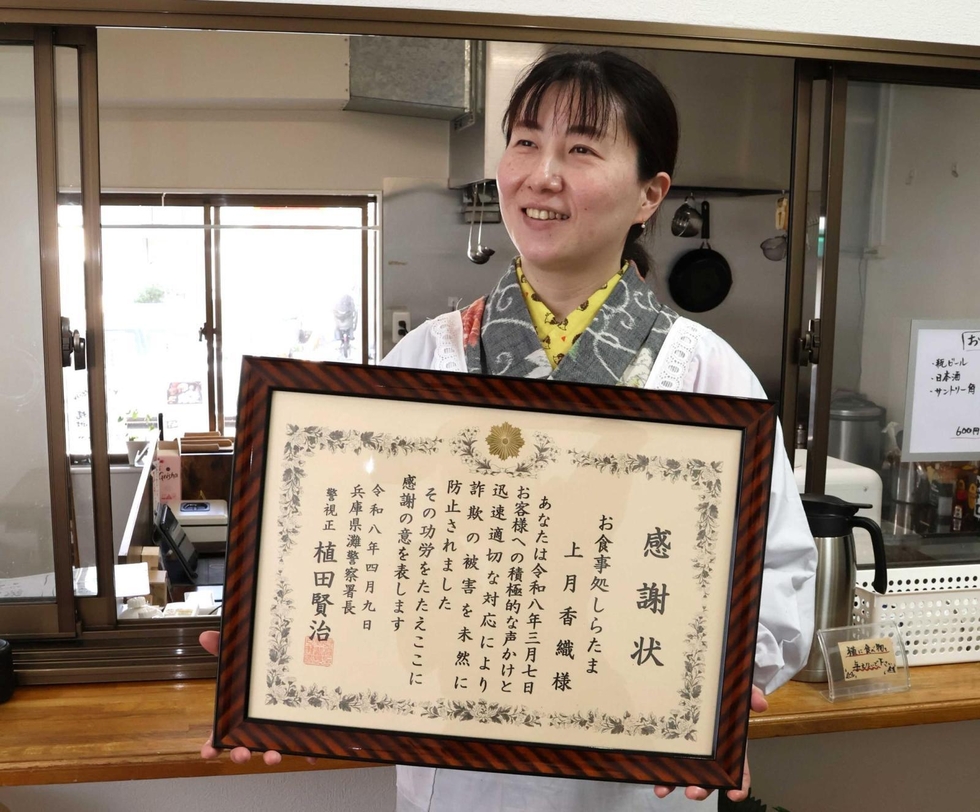 感謝状
お食事処しらたま
上月香織様
あなたは令和八年三月七日
お客様への積極的な声かけと
迅速適切な対応により
詐欺の被害を未然に
防止されました
その功労をたたえここに
感謝の意を表します
令和八年四月九日
兵庫県灘警察署長
警視正 植田賢治
・瓶ビール
・日本酒
・サントリー角
600円